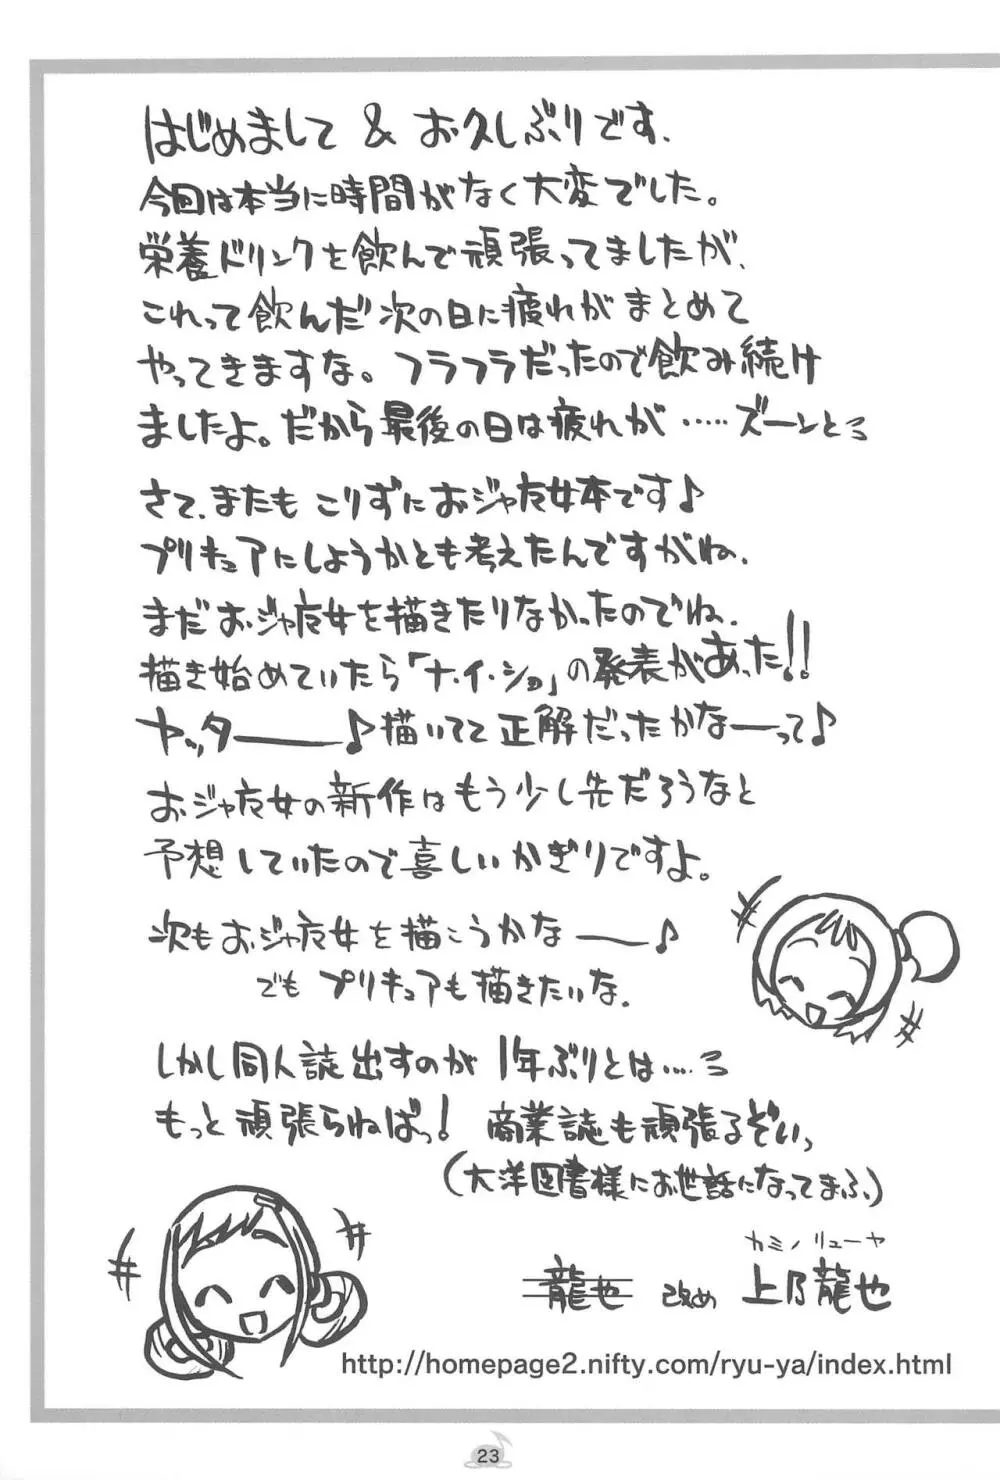 はじめまして & お久しぶりです、
今回は本当に時間がなく大変でした。
栄養ドリンクを飲んで頑張ってましたが、
これって飲んだ次の日に疲れがまとめて
やってきますな。フラフラだったので飲み続け
ましたよ。だから最後の日は疲れが……ズーンと
さて、またもこりずにおジャ魔女本です♪
プリキュアにしようかとも考えたんですがね、
まだおジャ魔女を描きたりなかったのでね、
描き始めていたら「ナ・イ・ショ」の発表があった!!
ヤッター――♪描いてて正解だったかなーって♪
おジャ魔女の新作はもう少し先だろうなと
予想していたので喜しいかぎりですよ。
次もおジャ魔女を描こうかな――♪
でもプリキュアも描きたいな、
しかし同人誌出すのが1年ぶりとは……
もっと頑張らねばっ! 商業誌も頑張るぞいっ
(大洋図書様にお世話になってまふ)
カミノリューヤ
龍也 改め 上乃龍也
http://homepage2.nifty.com/ryu-ya/index.html
23